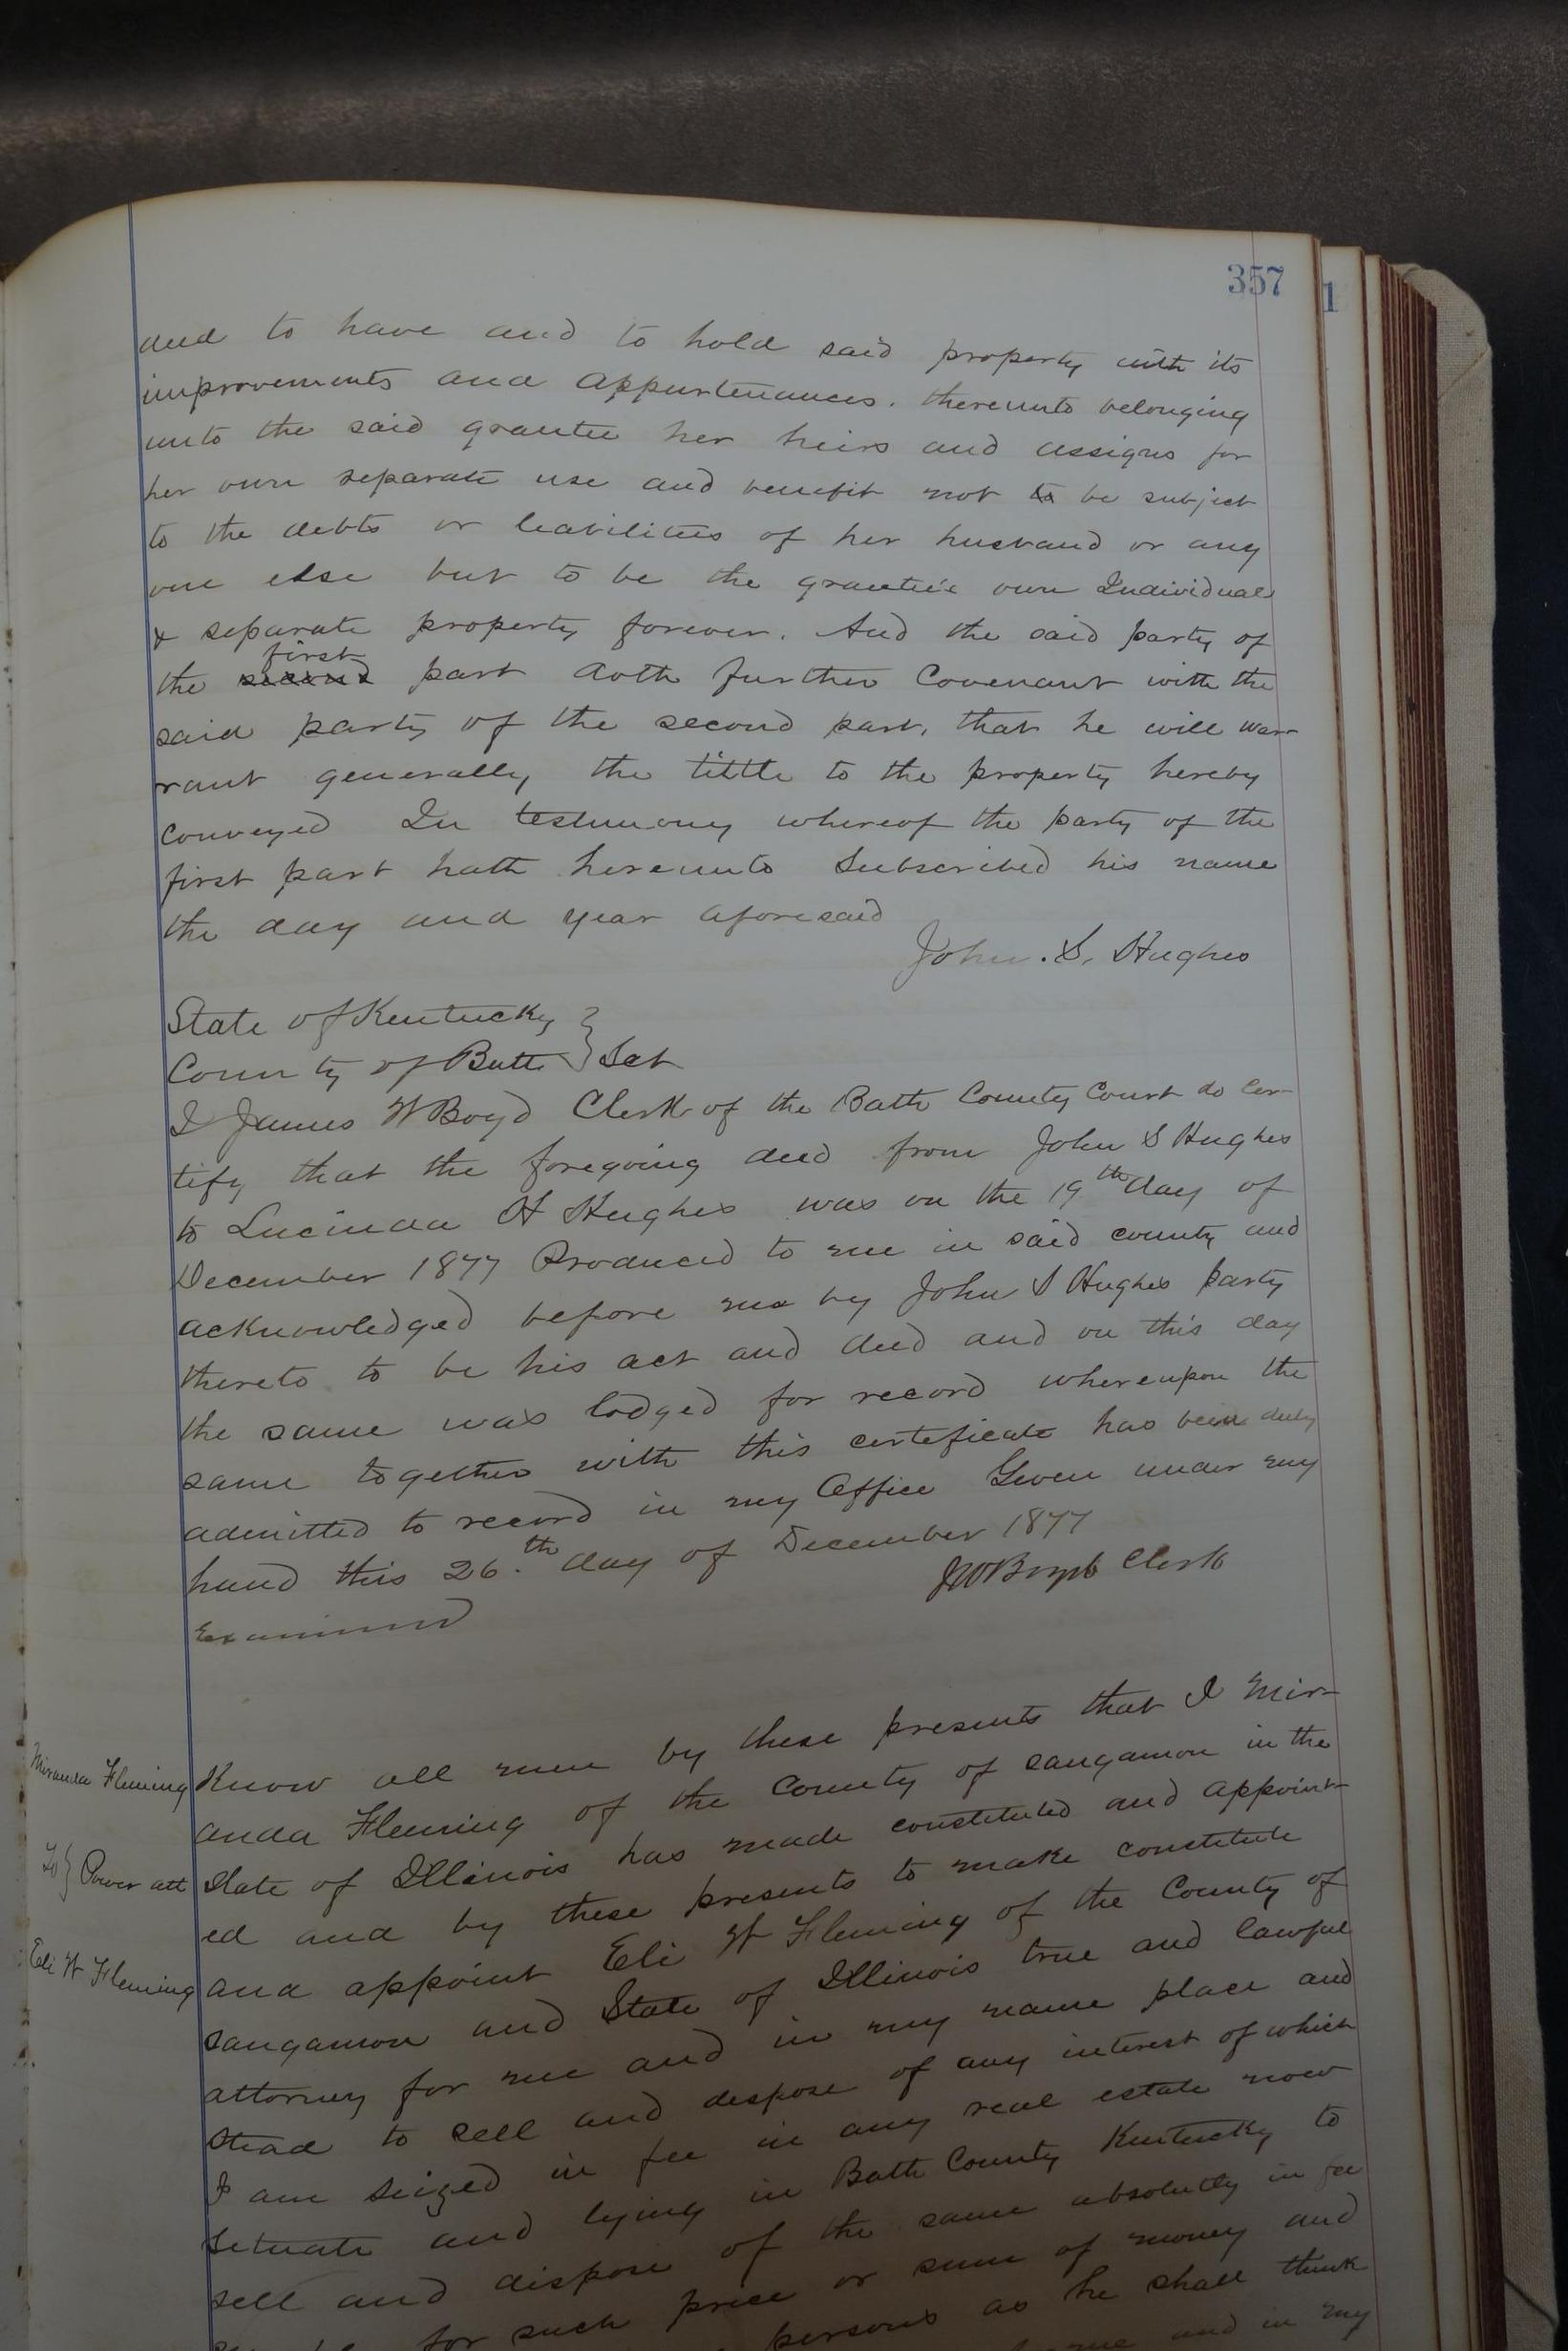 357
1
and to have and to hold said property with its
improvements and appurtenances. thereunto belonging
unto the said grantee her heirs and assigns for
her own separate use and benefit not to be subject
to the debts or leabilities of her husband or any
one else but to be the grantee's own Individual
& separate property forever. And the said party of
first
the second part doth further Covenant with the
said party of the second part, that he will war-
rant generally the tittle to the property hereby
conveyed In testimony whereof the party of the
first part hath hereunto Subscribed his name
the day and year aforesaid
John. S. Hughes
State of Kentucky
County of Bath } Sct
I James W Boyd Clerk of the Bath County Court do cer-
tify that the foregoing deed from John S Hughes
to Lucinda H Hughes was on the 19th day of
December 1877 Produced to me in said county and
acknowledged before me by John S Hughes party
thereto to be his act and deed and on this day
the same was lodged for record whereupon the
same together with this certeficate has been duly
admitted to record in my Office Given under my
hand this 26.th day of December 1877
JW Boyd Clerk
Examined
Miranda Fleming
To } Power att
Eli W Fleming
Know all men by these presents that I Mir-
anda Fleming of the County of Sangamon in the
State of Illinois has made constituted and appoint-
ed and by these presents to make constitute
and appoint Eli W Fleming of the County of
Sangamon and State of Illinois true and lawful
attorney for me and in my name place and
stead to sell and dispose of any interest of which
I am seized in fee in any real estate now
setuate and lying in Bath County Kentucky to
sell and dispose of the same absolutely in fee
for such price or sum of money and
persons as he shall think
me and in my